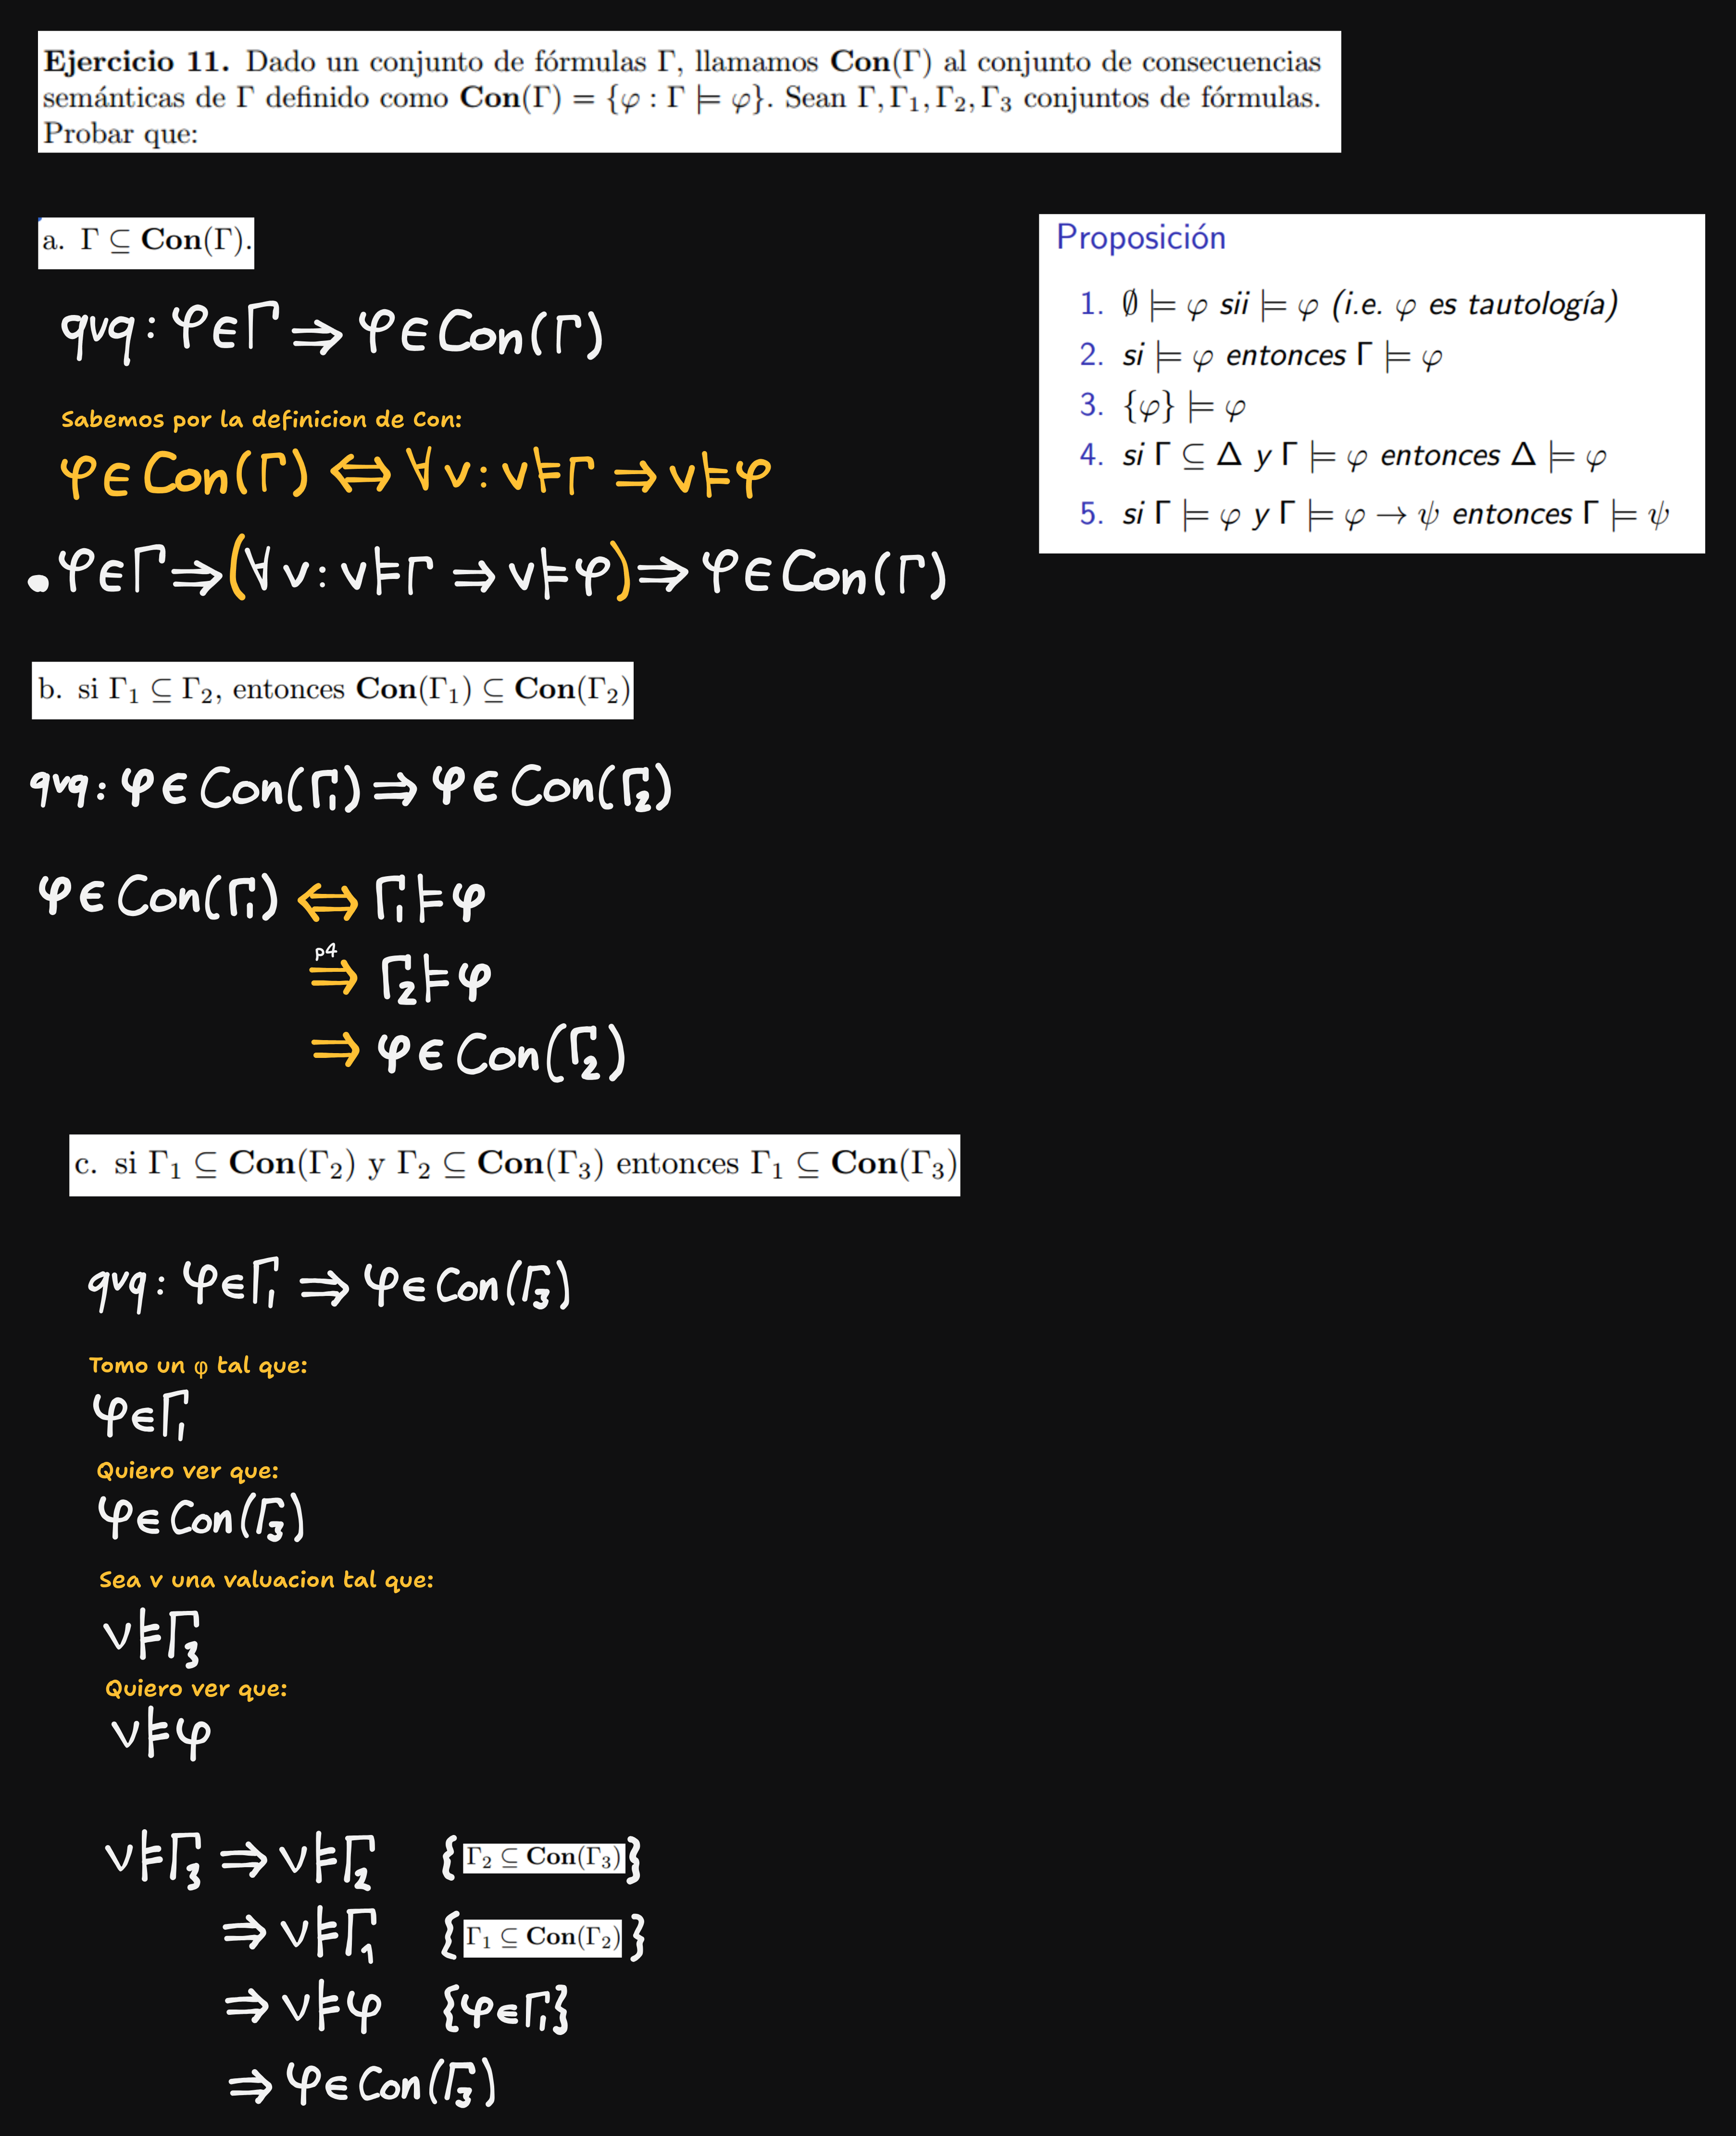 Ejercicio 11. Dado un conjunto de fórmulas Γ, llamamos Con(Γ) al conjunto de consecuencias
semánticas de Γ definido como Con(Γ) = {φ : Γ ⊨ φ}. Sean Γ, Γ₁, Γ₂, Γ₃ conjuntos de fórmulas.
Probar que:
a. Γ ⊆ Con(Γ).
qvq: φ∈Γ ⇒ φ∈Con(Γ)
Sabemos por la definicion de Con:
φ∈Con(Γ) ⇔ ∀v: v⊨Γ ⇒ v⊨φ
• φ∈Γ ⇒ (∀v: v⊨Γ ⇒ v⊨φ) ⇒ φ∈Con(Γ)
Proposición
1. ∅ ⊨ φ sii ⊨ φ (i.e. φ es tautología)
2. si ⊨ φ entonces Γ ⊨ φ
3. {φ} ⊨ φ
4. si Γ ⊆ Δ y Γ ⊨ φ entonces Δ ⊨ φ
5. si Γ ⊨ φ y Γ ⊨ φ → ψ entonces Γ ⊨ ψ
b. si Γ₁ ⊆ Γ₂, entonces Con(Γ₁) ⊆ Con(Γ₂)
qvq: φ∈Con(Γ₁) ⇒ φ∈Con(Γ₂)
φ∈Con(Γ₁) ⇔ Γ₁⊨φ
p4
⇒ Γ₂⊨φ
⇒ φ∈Con(Γ₂)
c. si Γ₁ ⊆ Con(Γ₂) y Γ₂ ⊆ Con(Γ₃) entonces Γ₁ ⊆ Con(Γ₃)
qvq: φ∈Γ₁ ⇒ φ∈Con(Γ₃)
Tomo un φ tal que:
φ∈Γ₁
Quiero ver que:
φ∈Con(Γ₃)
Sea v una valuacion tal que:
v⊨Γ₃
Quiero ver que:
v⊨φ
v⊨Γ₃ ⇒ v⊨Γ₂ {Γ₂ ⊆ Con(Γ₃)}
⇒ v⊨Γ₁ {Γ₁ ⊆ Con(Γ₂)}
⇒ v⊨φ {φ∈Γ₁}
⇒ φ∈Con(Γ₃)